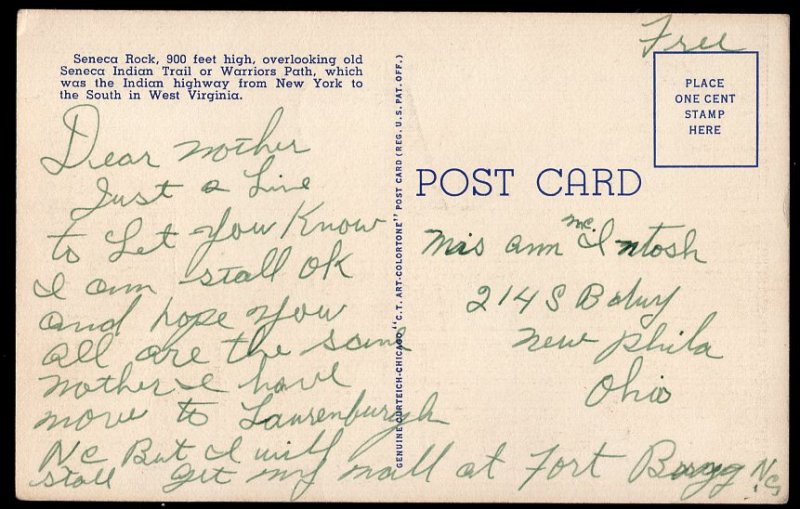 Seneca Rock, 900 feet high, overlooking old
Seneca Indian Trail or Warriors Path, which
was the Indian highway from New York to
the South in West Virginia.
Dear Mother
Just a Line
to Let you Know
I am stall OK
and hope you
all are the same
Mother I have
move to Laurenburgh
NC But I will
stall get my mall at Fort Bragg NC
GENUINE CURTEICH-CHICAGO "C.T. ART-COLORTONE" POST CARD (REG. U.S. PAT. OFF.)
Free
PLACE
ONE CENT
STAMP
HERE
POST CARD
Mis ann McIntosh
214 S Bdwy
New Phila
Ohio